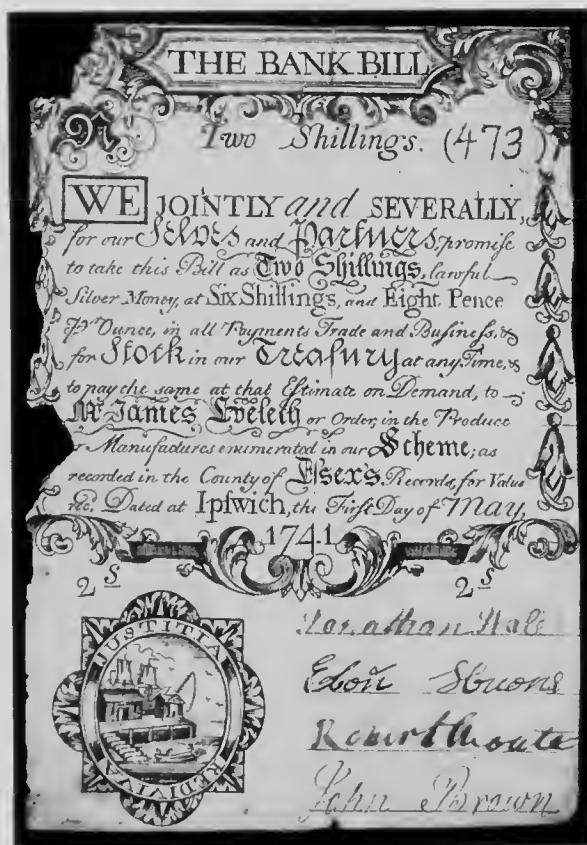 THE BANK BILL
Two Shillings. (473
WE JOINTLY and SEVERALLY,
for our Selves and Partners, promise
to take this Bill as Two Shillings, lawful
Silver Money, at Six Shillings, and Eight Pence
Pr Ounce, in all Payments Trade and Business, &
for Stock in our Treasury at any Time, &
to pay the same at that Estimate on Demand, to
Mr James Eveleth or Order, in the Produce
Manufactures enumerated in our Scheme; as
recorded in the County of Esex's Records, for Value
&c. Dated at Ipswich, the First Day of May,
1741
2 S 2 S
JUSTITIA
REDIVIVA
Jonathan Hale
Eben
John Brown